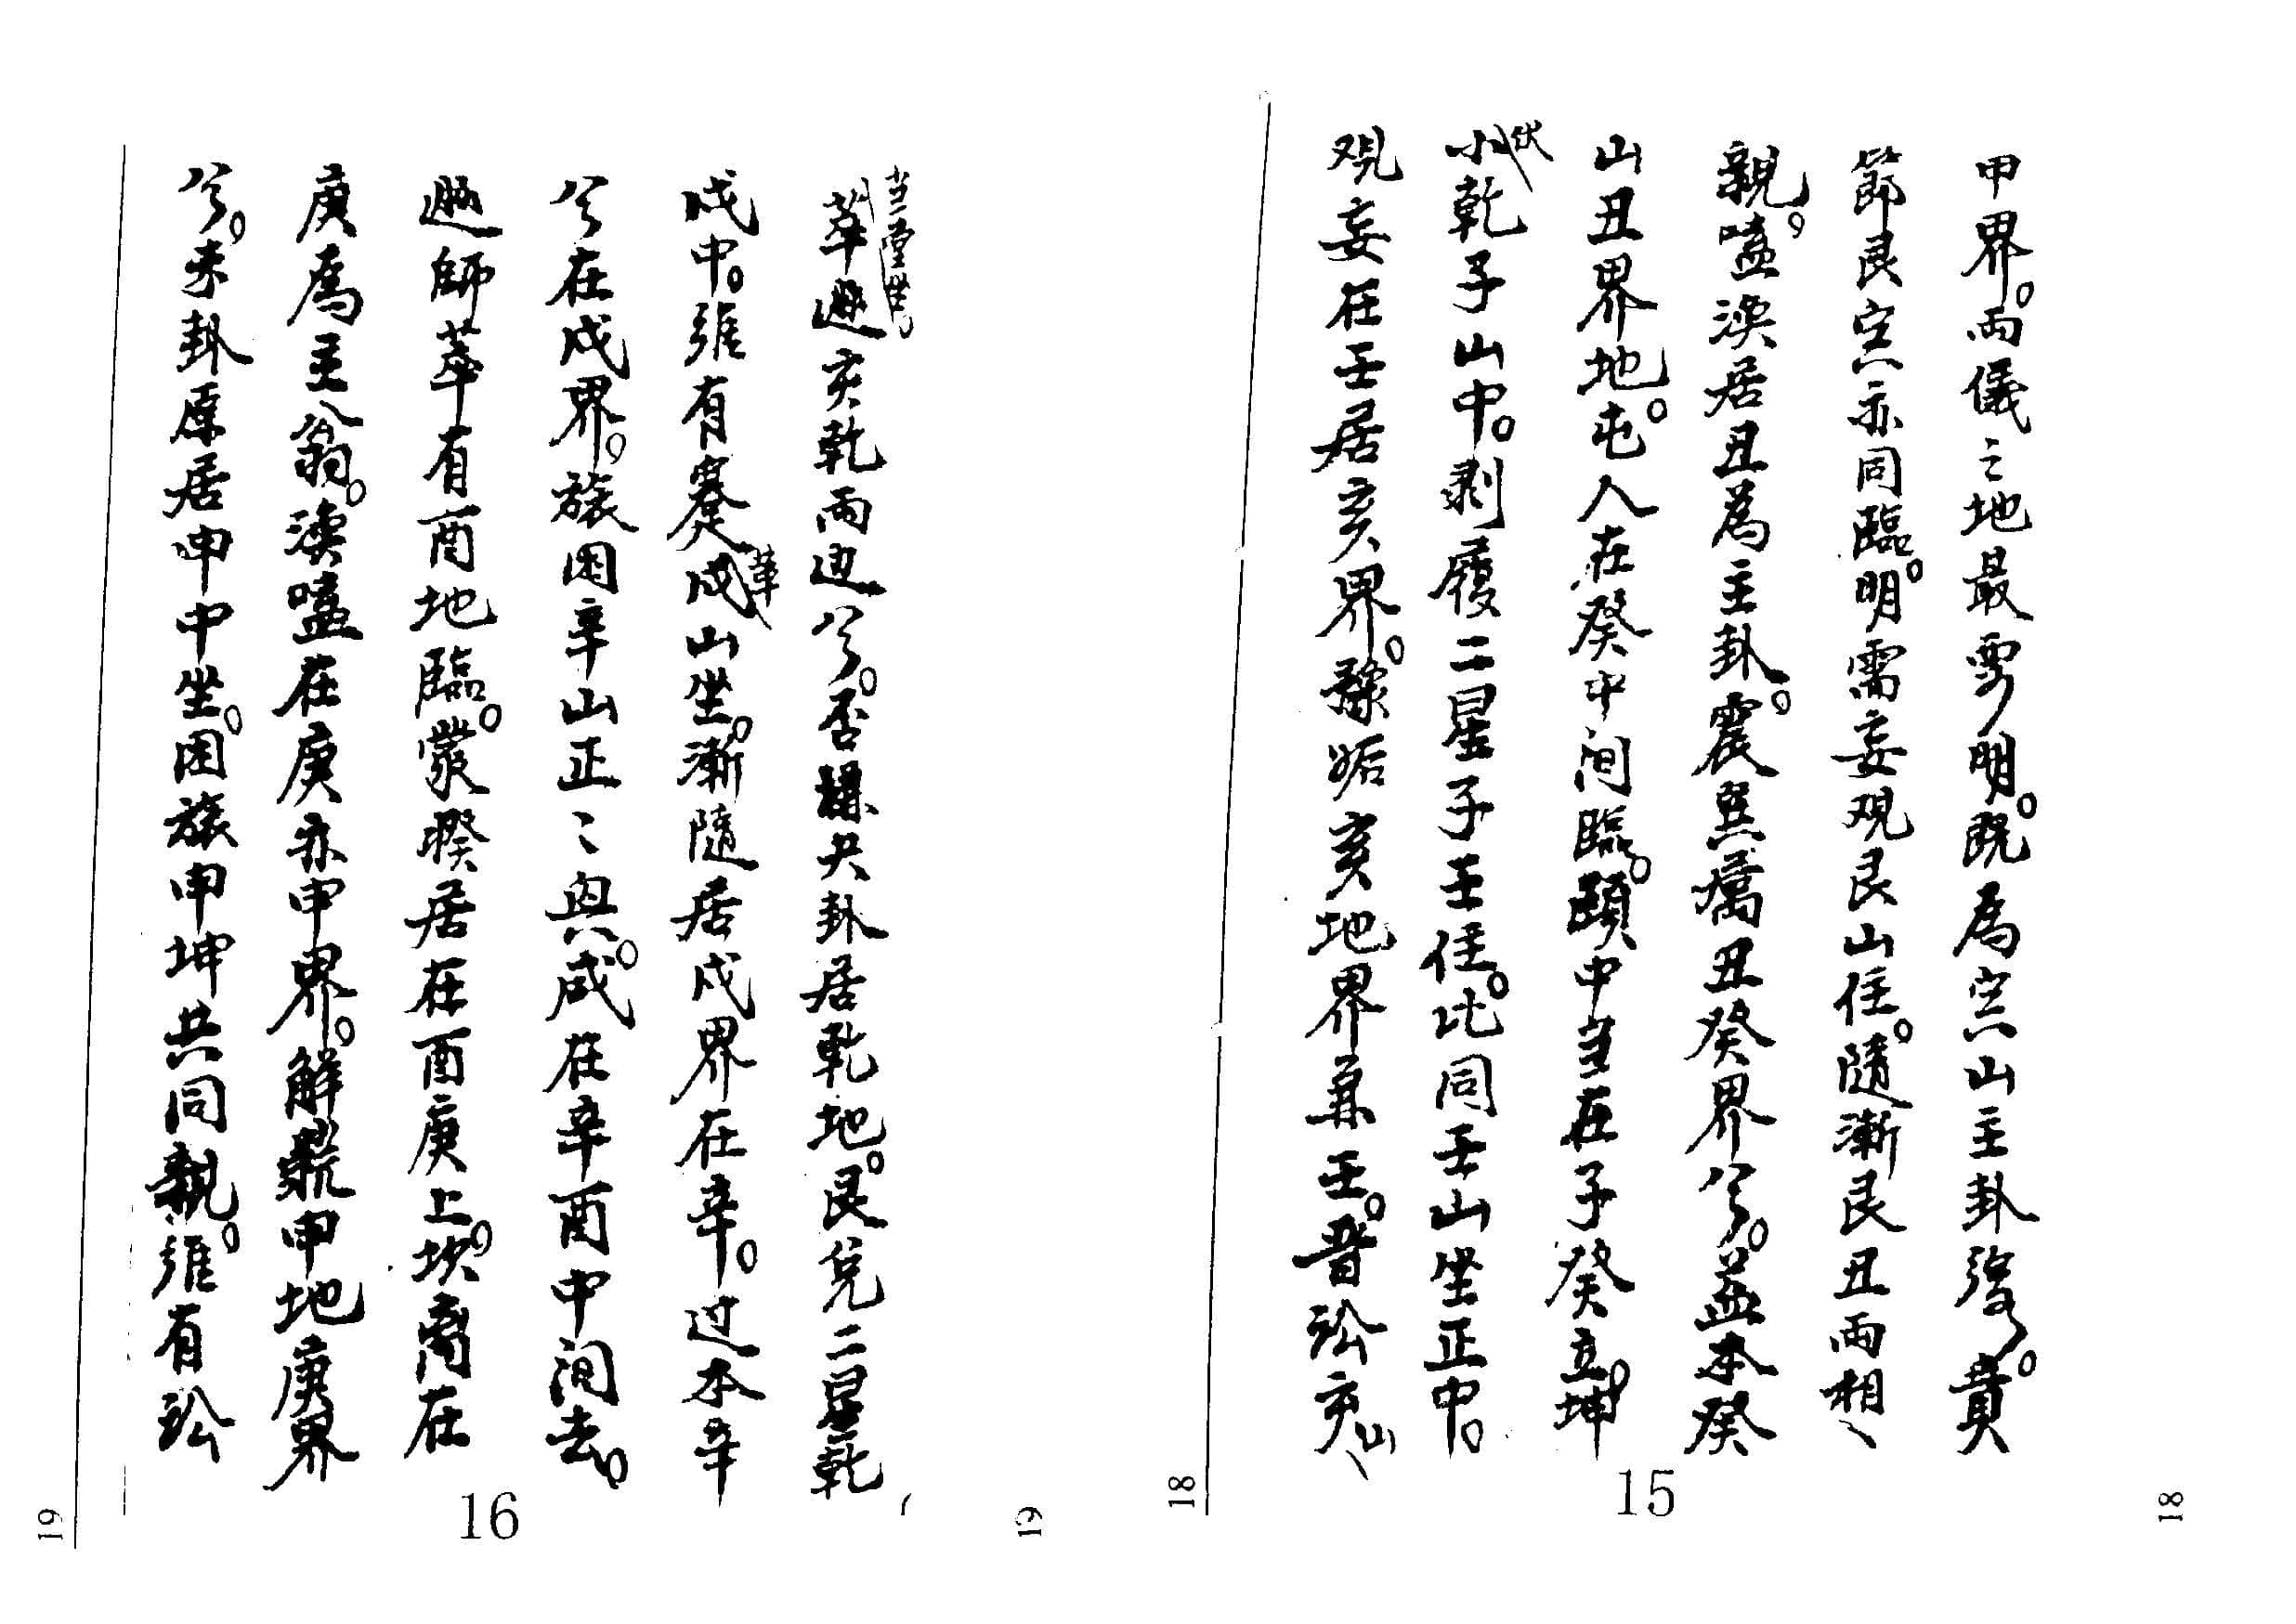 甲界。两儀之地最要明。既為宮山主卦強。賁
節艮宮亦同臨。明需妄观艮山住。隨漸艮丑両相〻
親。嗑渙居丑為主卦。震巽癘丑癸界兮。益本癸
山丑界地。屯人在癸中间臨。頤中孚在子癸立。坤
小乾子山中。剥履二星子壬住。比同壬山坐正中。
伏
观妄在壬居亥界。豫姤亥地界兼壬。晋訟亥山
15
18
18
当堂坐
萃遯亥乾两边兮。否夬卦居乾地。艮兌二星乾
戍中。谁有蹇戍山坐。漸隨居戍界在辛。过本辛
革
兮在戍界。旅困辛山正〻與。咸在辛酉中间去。
遯師萃有酉地臨。蒙睽居在酉庚上。坎离在
庚為主翁。渙嗑在庚亦申界。解鼎申地庚界
兮。未卦原居申中坐。困旅申坤共同親。谁有訟
16
19
19